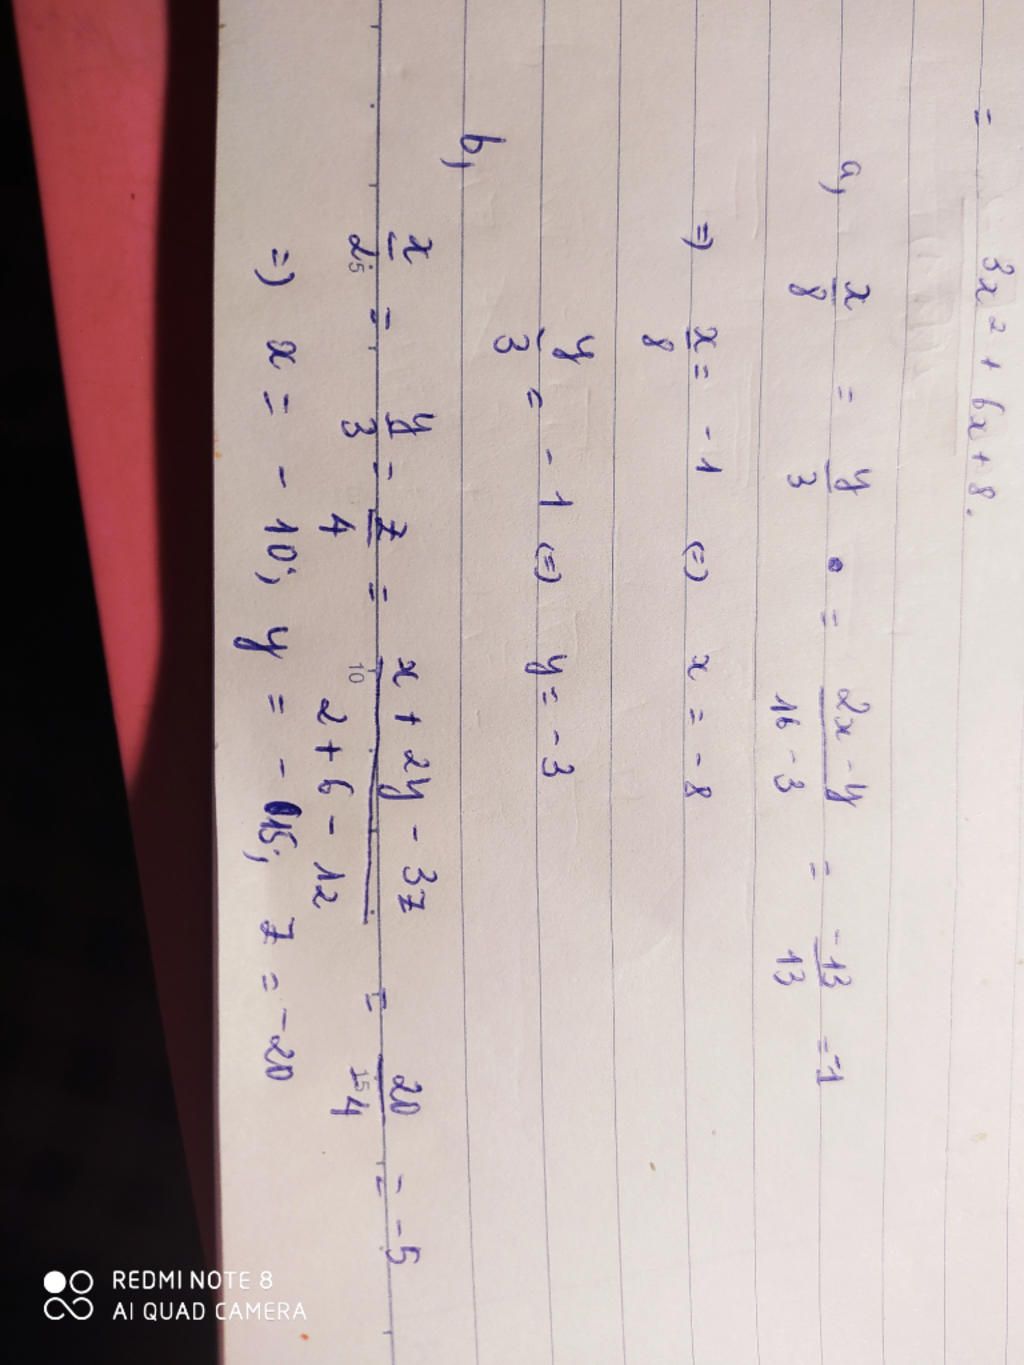 = 3x² + 6x + 8.
a, x/8 = y/3 = 2x - y / 16 - 3 = -13/13 = -1
=) x/8 = -1 (=) x = -8
y/3 = -1 (=) y = -3
b, x/2 = y/3 = z/4 = x + 2y - 3z / 2 + 6 - 12 = 20/4 = -5
5 10 15
=) x = -10; y = -15; z = -20
REDMI NOTE 8
AI QUAD CAMERA